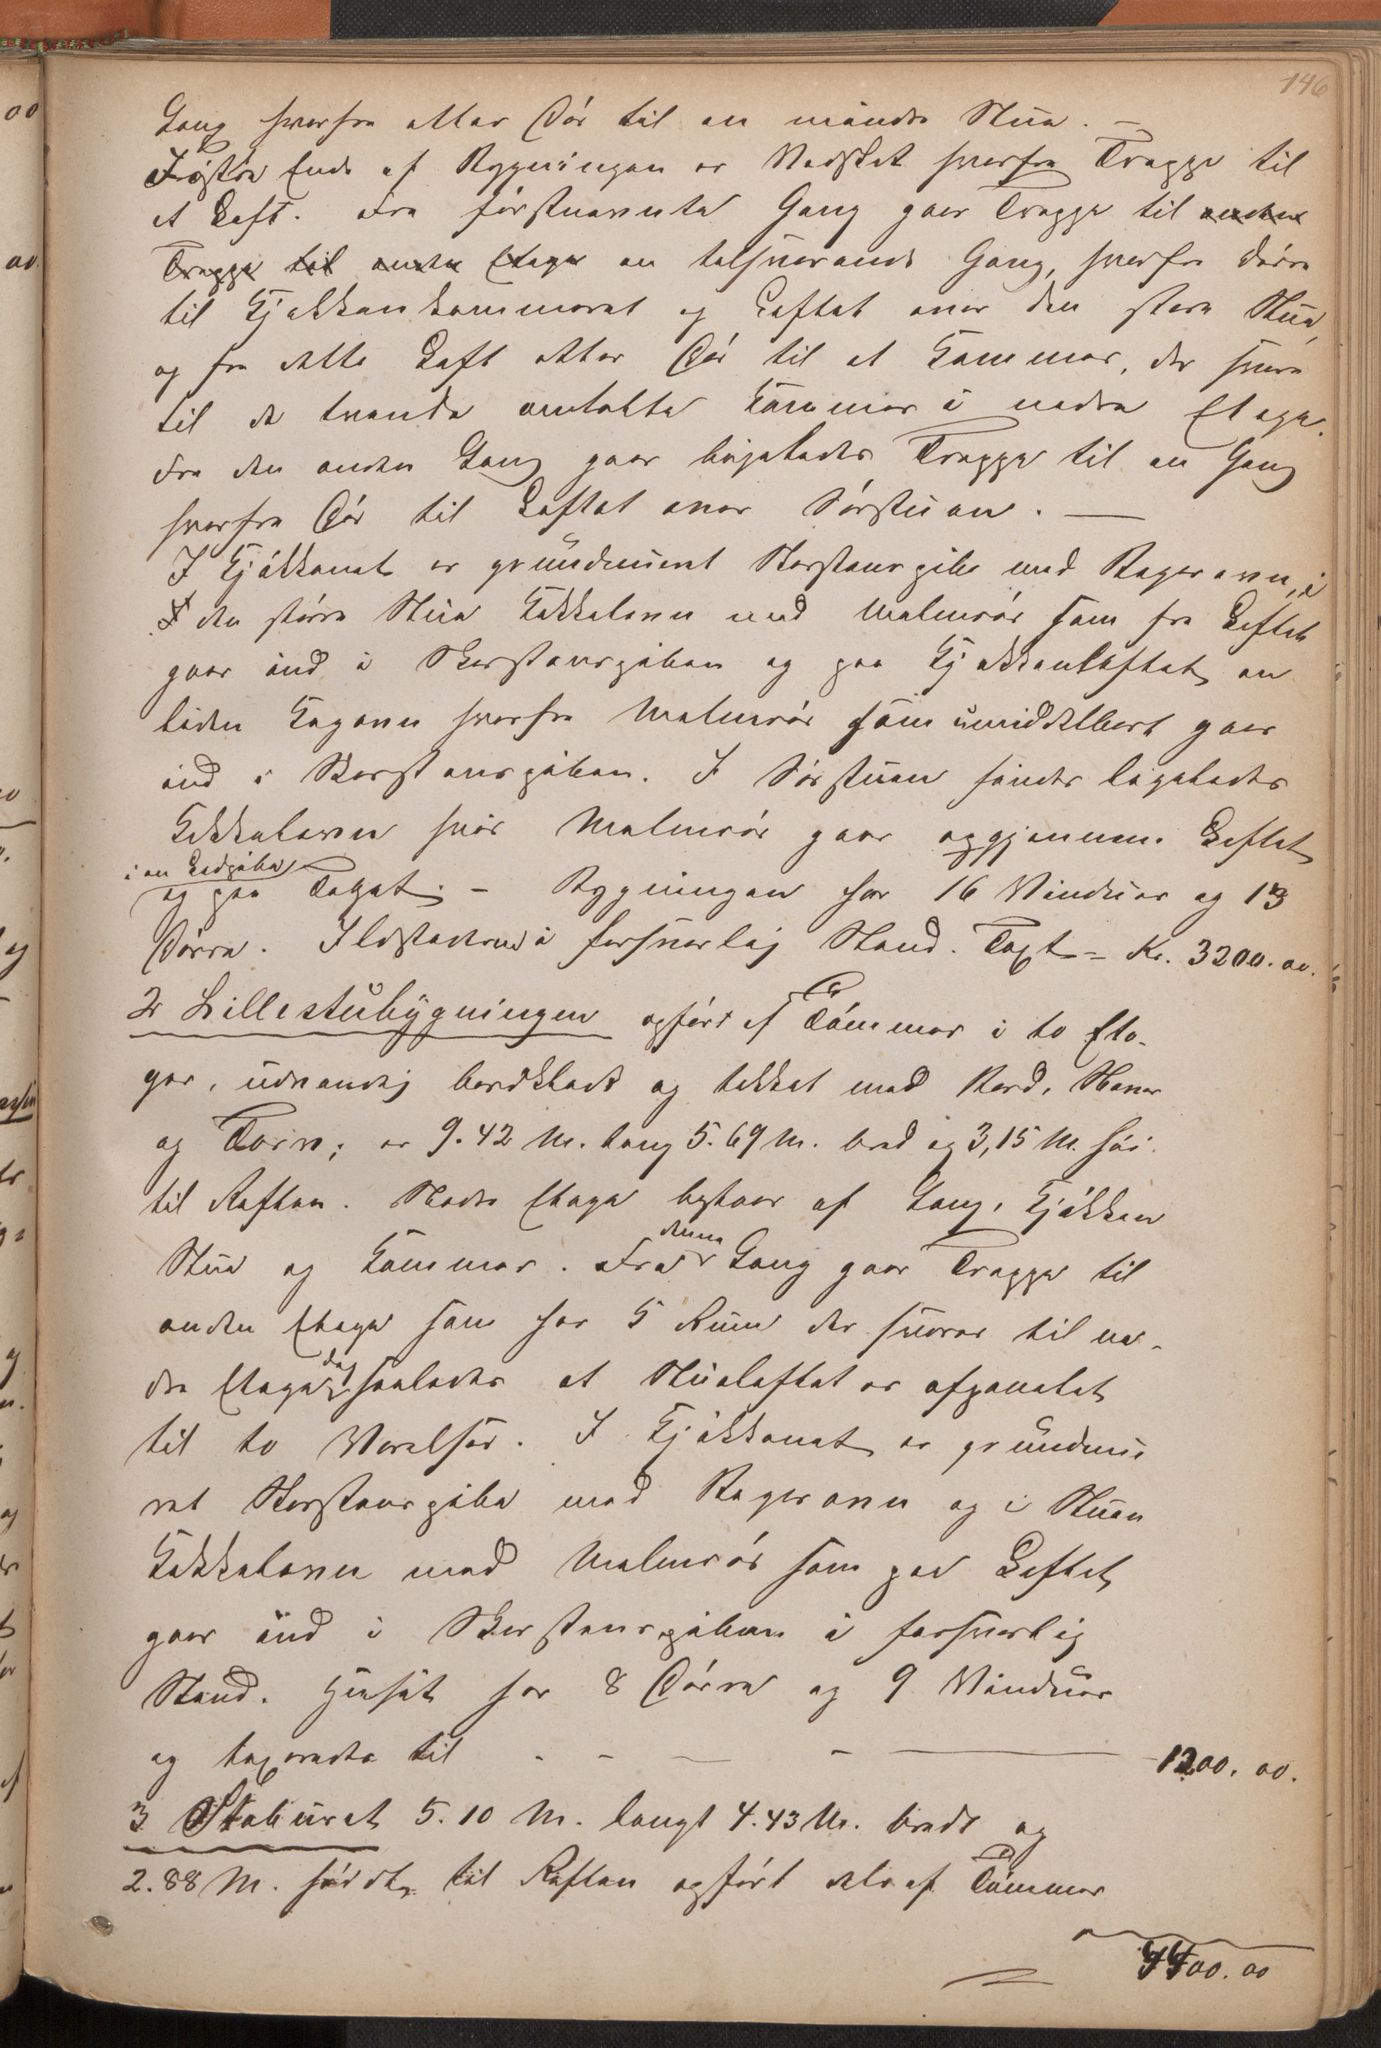 146
Gang hvorfra atter Dör til en mindre Stue. –
I östre Ende af Bygningen er Vedskot hvorfra Trappe til
et Loft. Fra förstnævnte Gang gaar Trappe til anden
Trappe til anden Etage en tilsvarende Gang, hvorfra Dörre
til Kjøkkenkammeret og Loftet over den store Stue
og fra dette Loft atter Dör til et Kammer, der svarer
til de tvende omtalte Kammer i nedre Etage.
Fra den anden Gang gaar ligeledes Trappe til en Gang
hvorfra Dör til Loftet over Sörstuen. —
I Kjökkenet er grundmuret Skorstenspibe med Bagerovn, i
I den större Stue Kakkelovn med Malmrör som fra Loftet
gaar ind i Skorstenspiben og paa Kjøkkenloftet en
liden Kogovn hvorfra Malmrör som umiddelbart gaar
ind i Skorstenspiben. I Sörstuen findes ligeledes
Kakkelovn hvis Malmrör gaar op gjennem Loftet
i en Ledpibe
og paa Taget. – Bygningen har 16 Vinduer og 13
Dörre. Ildstederne i forsvarlig Stand. Taxt = Kr. 3200.00.
2 Lillestubygningen opfört af Tömmer i to Eta-
ger, udvendig bordklædt og tækket med Bord, Næver
og Torv; er 9.42 M. lang 5.69 M. bred og 3,15 M. höi
til Raften. Nedre Etage bestaar af Gang, Kjökken
Stue og Kammer. Fra denne Gang gaar Trappe til
anden Etage som har 5 Rum der svarer til ne-
dre Etage dog saaledes at Stueloftet er afpanelet
til to Værelser. I Kjökkenet er grundmu
ret Skorstenspibe med Bagerovn og i Stuen
Kakkelovn med Malmrör som paa Loftet
gaar ind i Skorstenspiben i forsvarlig
Stand. Huset har 8 Dörre og 9 Vinduer
og taxeredes til - - — - — 1200.00.
3 Staburet 5.10 M. langt 4.43 M. bredt og
2.88 M. höidt til Raften opfört dels af Tömmer
4400.00